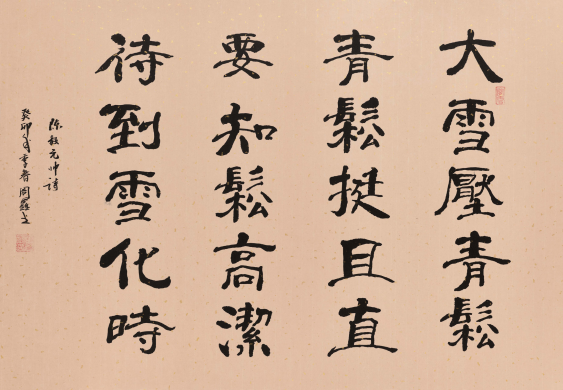 大雪壓青鬆
青鬆挺且直
要知鬆高潔
待到雪化時
陈毅元帅詩
癸卯年季春周